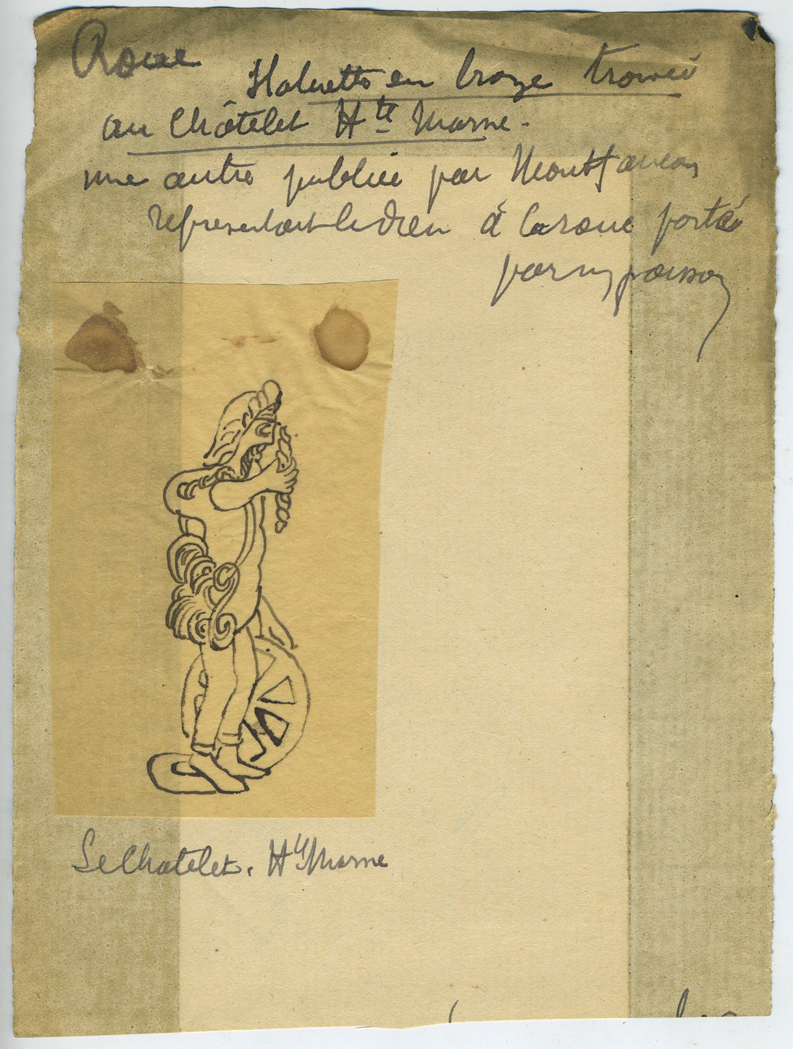 Roue
Statuette en bronze trouvée
au Châtelet Hte Marne.
une autre publiée par Montfaucon
représentant le dieu à la roue porté
par un poisson
Le Chatelet. Hte Marne